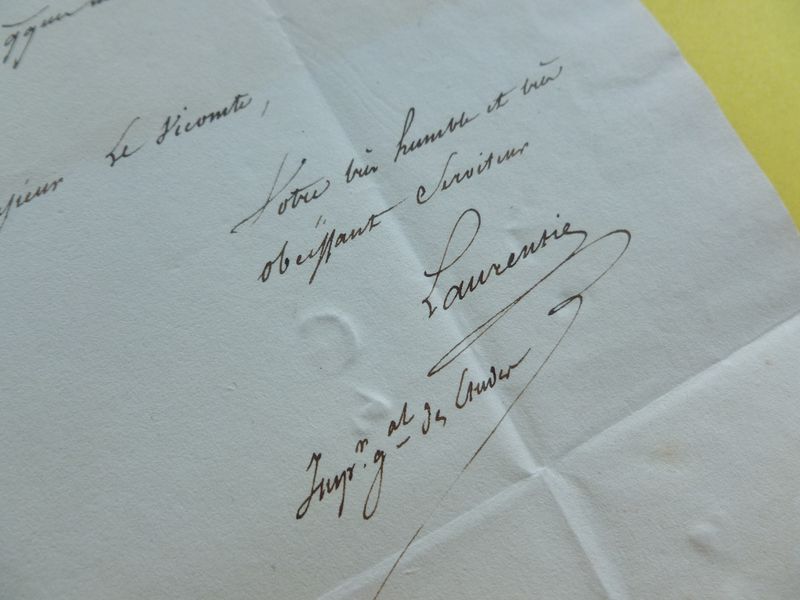 Le Vicomte,
Votre très humble et très
obéissant Serviteur
Laurentie
Insp.r g.al des Etudes